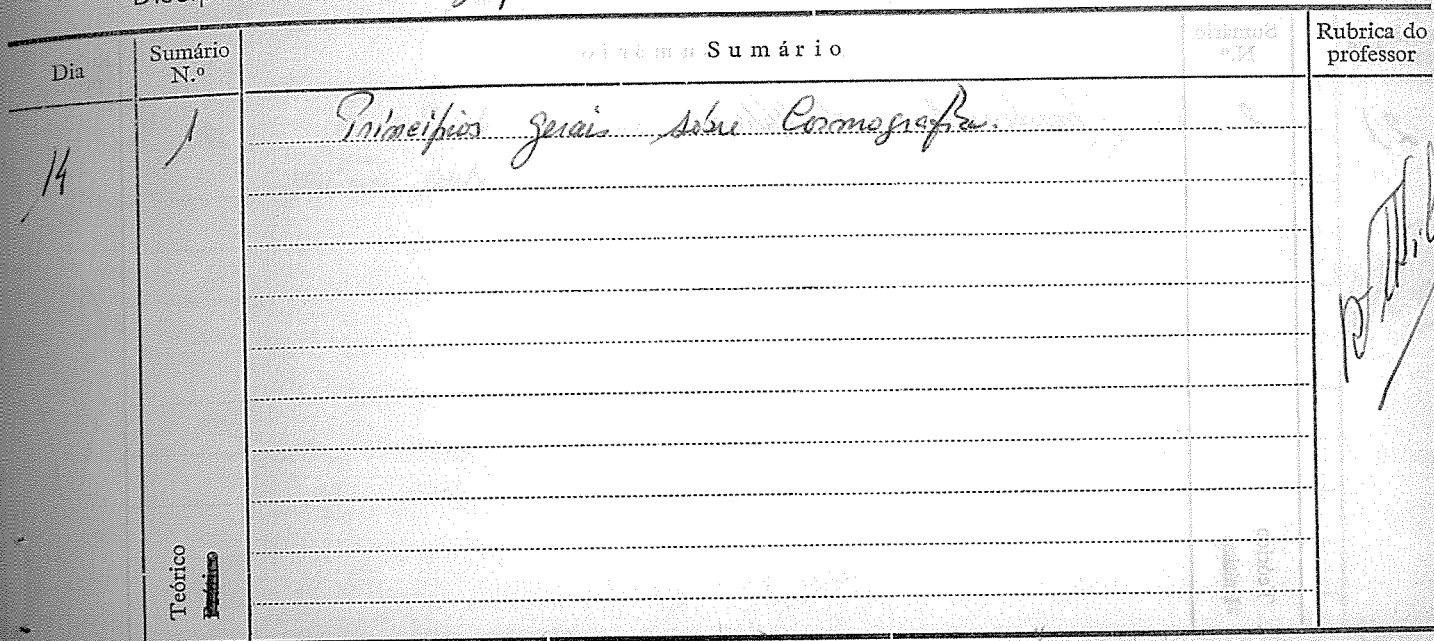 Dia
Sumário N.º
Sumário
Rubrica do professor
14
1
Princípios gerais sôbre Cosmografia.
Teórico